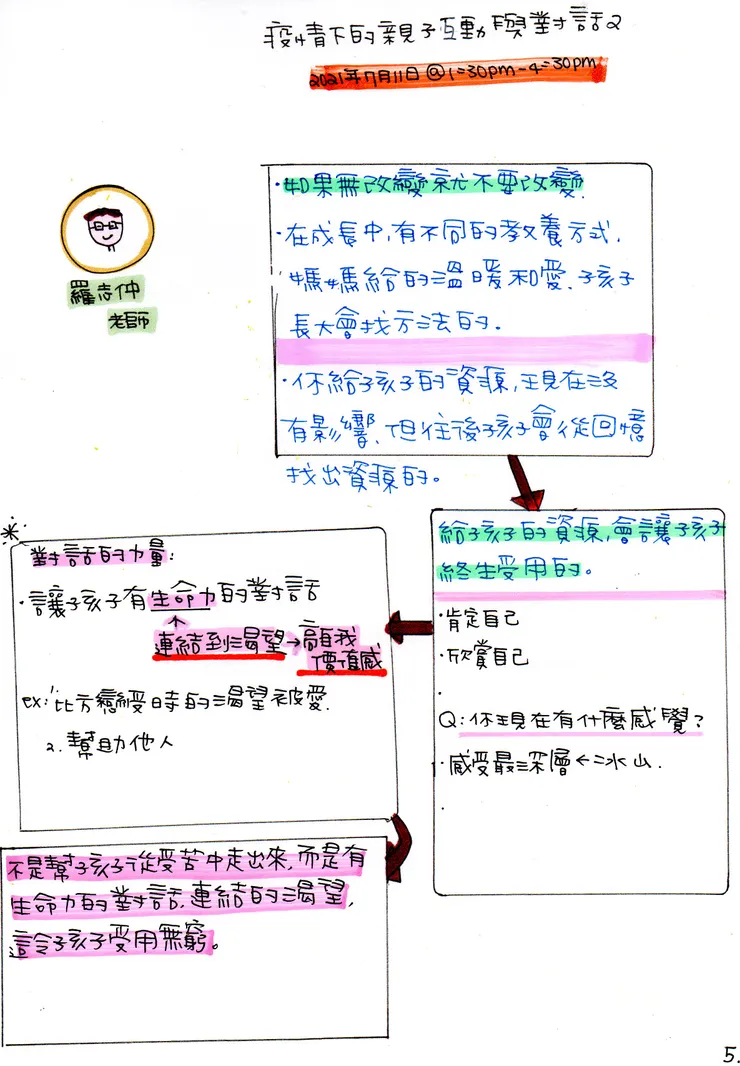 疫情下的親子互動與對話2
2021年7月11日@1:30pm-4:30pm
羅志仲
老師
·如果無改變就不要改變.
·在成長中,有不同的教養方式.
媽媽給的溫暖和愛.孩子
長大會找方法的.
·你給孩子的資源,現在沒
有影響.但往後孩子會從回憶
找出資源的。
給孩子的資源,會讓孩子
終生受用的。
·肯定自己
·欣賞自己
·
Q:你現在有什麼感覺?
·感受最深層←冰山.
·
對話的力量:
·讓孩子有生命力的對話
連結到渴望→高自我
價值感
ex:1.比方戀愛時的渴望被愛.
2.幫助他人
不是幫孩子從受苦中走出來,而是有
生命力的對話,連結的渴望,
這令孩子受用無窮。
5.